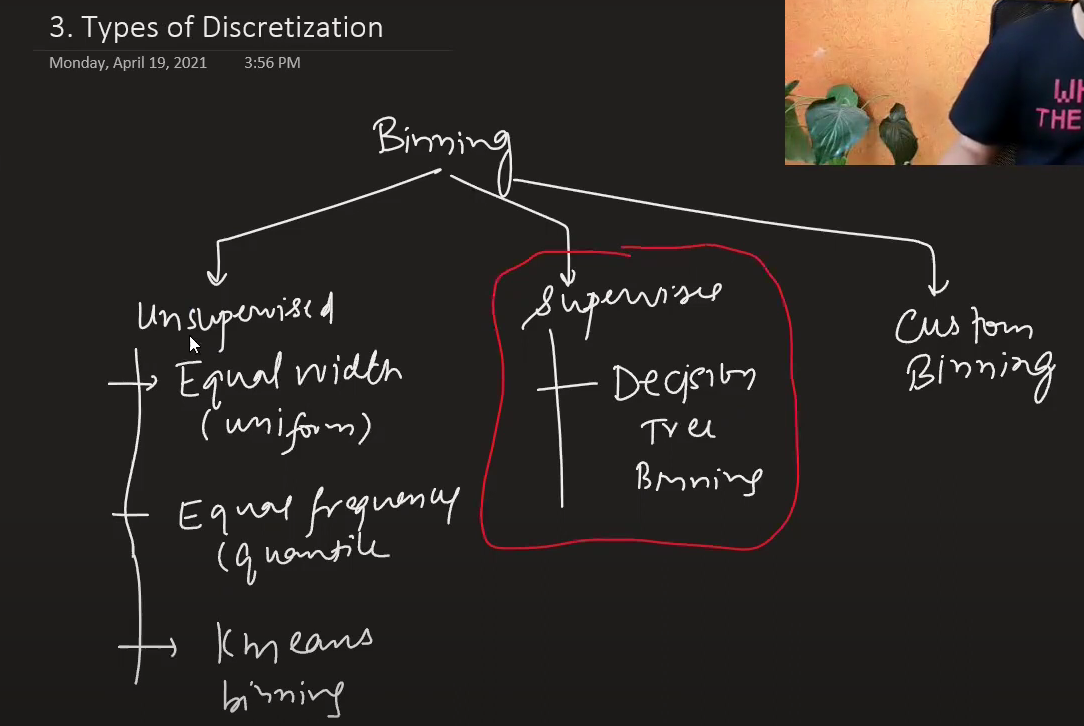 3. Types of Discretization
Monday, April 19, 2021 3:56 PM
WH
THE
Binning
Unsupervised
Equal width
(uniform)
Equal frequency
(quantile
Kmeans
binning
Supervised
Decision
Tree
Binning
Custom
Binning